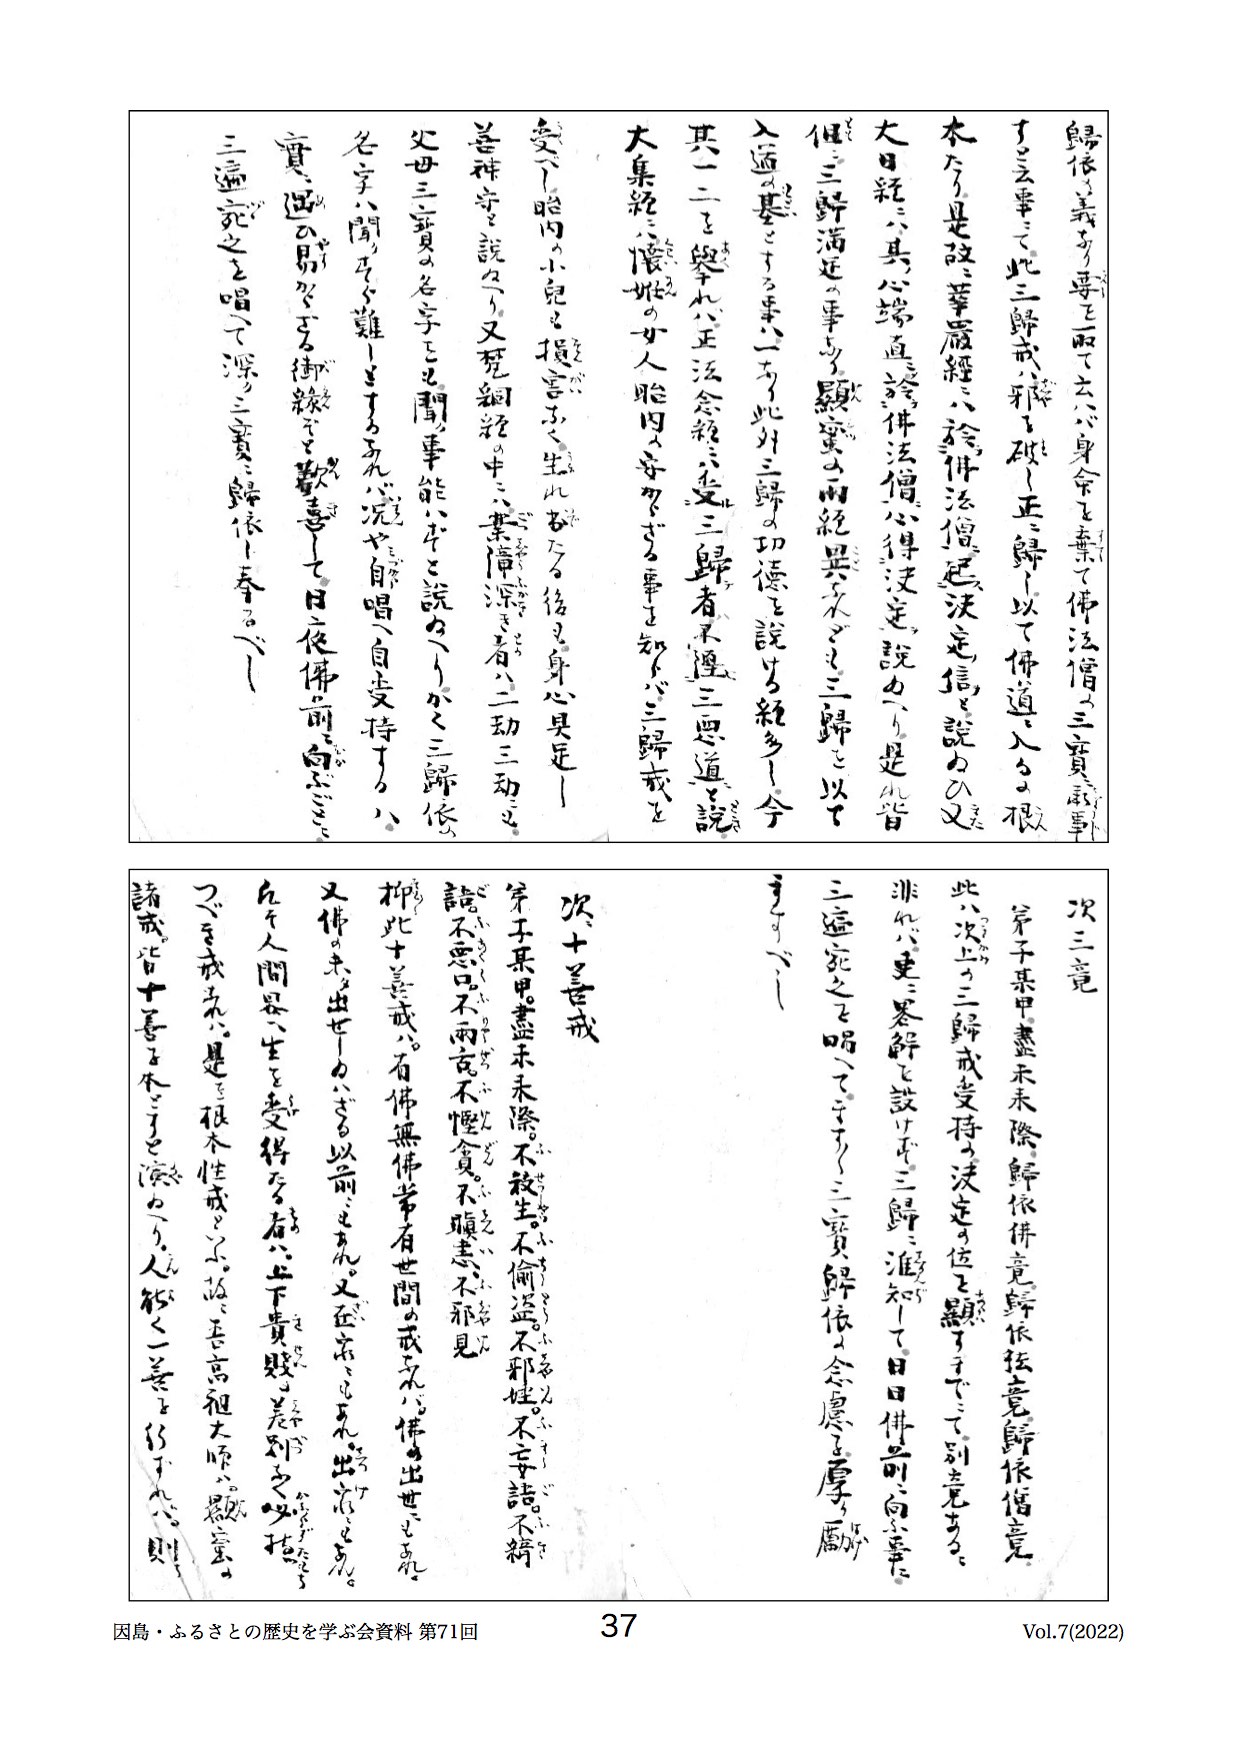 歸依の義なり要を取て云ハバ身命を棄て佛法僧の三寶に
すと云事にて此三歸戒ハ邪を破し正に歸し以て佛道に入るの根
本たり是故に華嚴經にハ於佛法僧起決定信と説ゐひ又
大日經にハ其心端直於佛法僧心得決定説ゐへり是れ皆
但に三歸満足の事なり顯蜜の両經異なれども三歸を以て
入道の基とする事ハ一なり此外三歸の功德を説ける經多し今
其一二を擧れバ正法念經にハ受三歸者不堕三悪道と説
大集經にハ懐妊の女人胎内の安からざる事を知らバ三歸戒を
受べし胎内の小兒も損害なく生れ出たる後も身心具足し
善神守と説ゐへり又梵網經の中にハ業障深き者ハ二劫三劫にも
父母三寶の名字をも聞事能ハずと説ゐへりかく三歸依の
名字ハ聞すら難しとするなれバ况や自唱へ自受持するハ
實に遇ひ易からざる御縁ぞと歡喜して日夜佛前に向ふごとに
三遍宛之を唱へて深く三寶に歸依し奉るべし
次三竟
弟子某甲盡未来際歸依佛竟歸依法竟歸依僧竟
此ハ次上の三歸戒受持の決定の位を顯すまでにて別意あるに
非れバ更に畧解を設けず三歸に准知して日日佛前に向ふ事に
三遍宛之を唱へてますく三寶歸依の念慮を厚く勵
ますべし
次十善戒
弟子某甲。盡未来際。不殺生。不偷盗。不邪婬。不妄語。不綺
語。不悪口。不両舌。不慳貪。不瞋恚、不邪見
抑此十善戒ハ。有佛無佛常有世間の戒なれバ。佛の出世にもあれ。
又佛の未出世しゐハざる以前にもあれ。又在家にもあれ。出家にもあれ。
凡そ人間界へ生を受得たる者ハ。上下貴賤の差別なく必持
つべき戒なれハ。是を根本性戒といふ。故に吾高祖大師ハ。顯蜜の
諸戒。皆十善を本とすと演ゐへり。人能く一善を行ずれハ。則
因島・ふるさとの歴史を学ぶ会資料 第71回
37
Vol.7(2022)